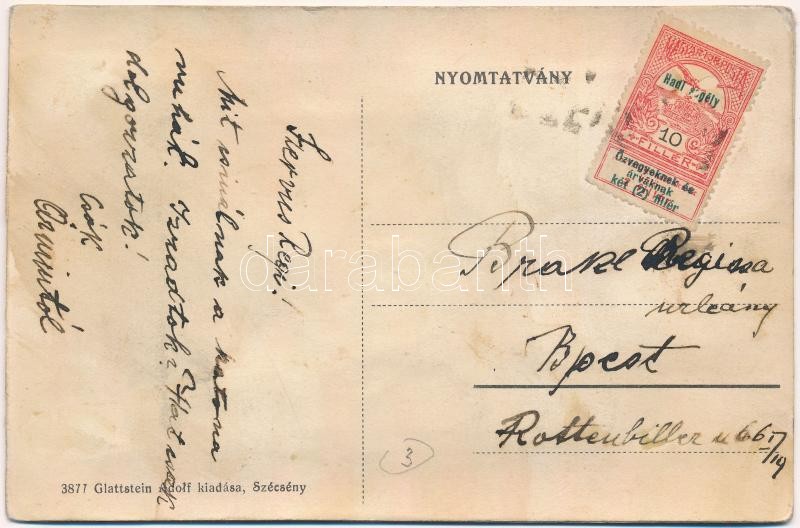 NYOMTATVÁNY
MAGYAR POSTA
Hadi segély
10
FILLÉR
Özvegyeknek és
árváknak
két (2) fillér
Szervus Regi!
Mit csinálnak a katona
ruhák. Izradtok? Hat csak
dolgozzatok!
Csók
darabanth
Brakl Regina
urleány
Bpest
Rottenbiller u 66
3
3877 Glattstein Adolf kiadása, Szécsény